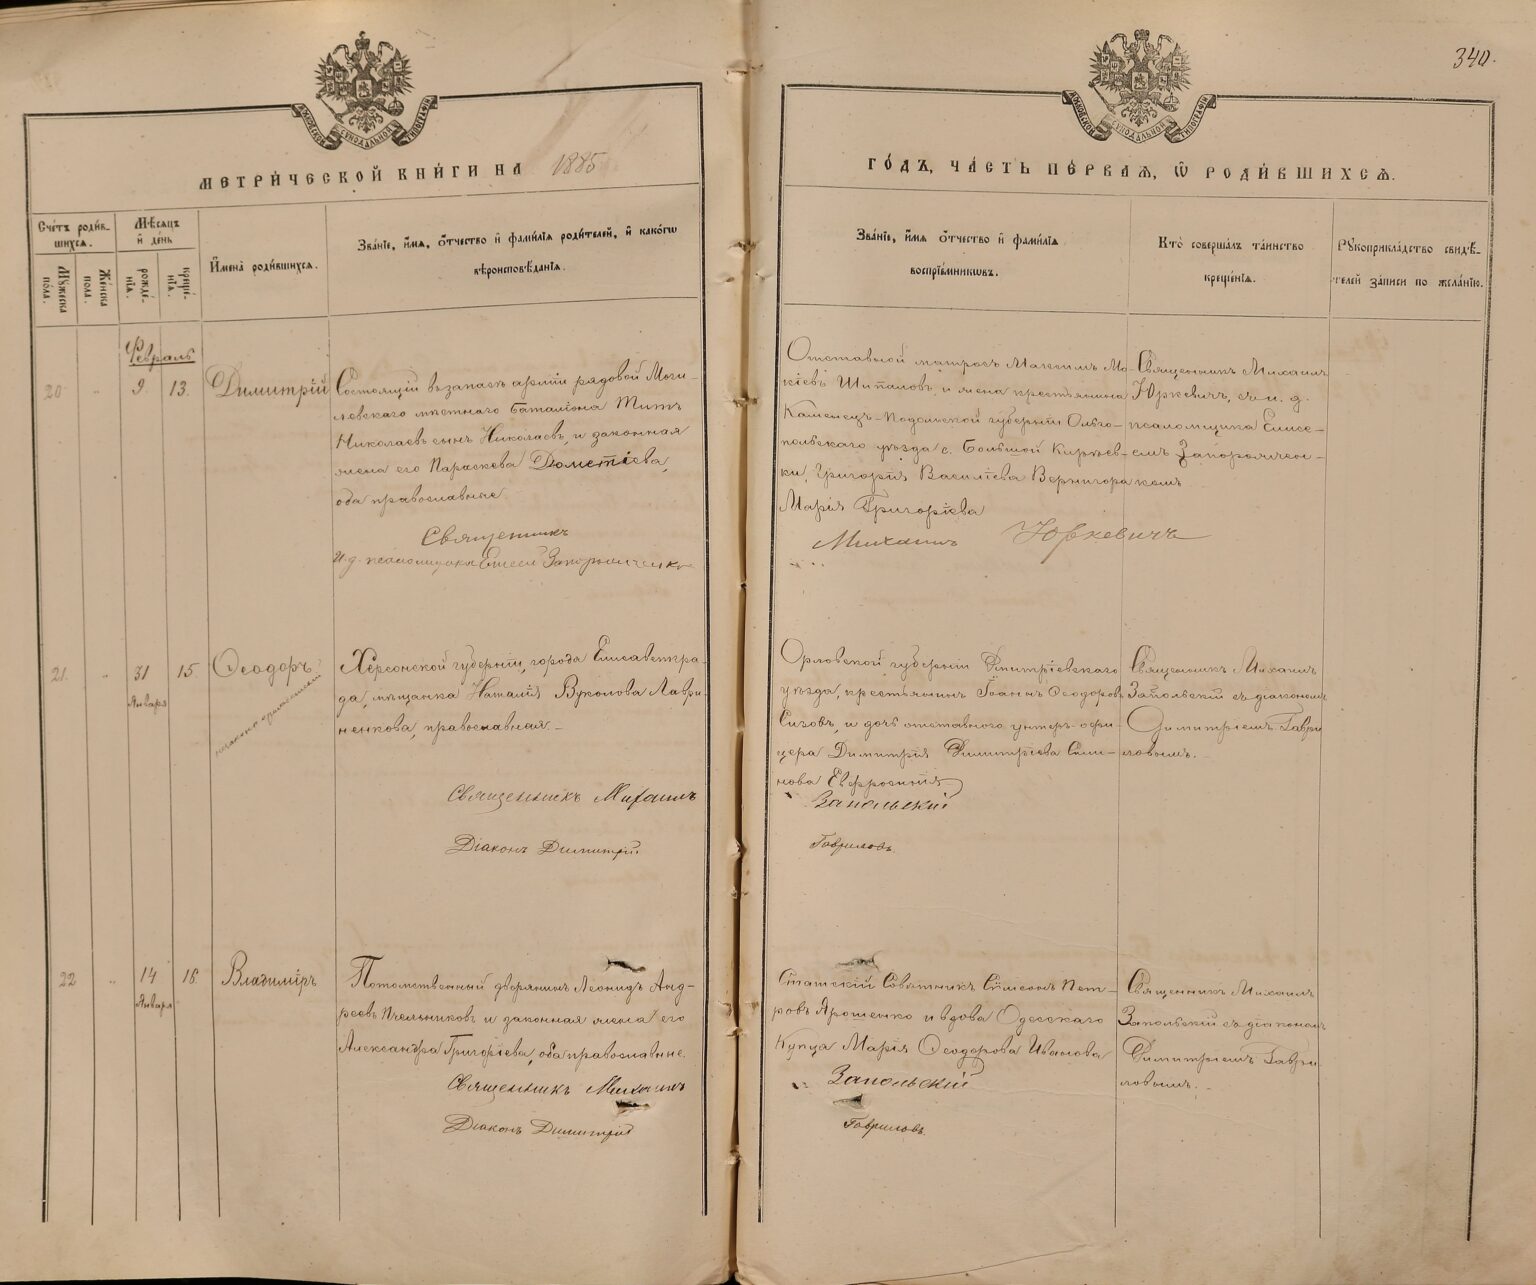 340.
МОСКОВСКОЙ СѴНОДАЛЬНОЙ ТИПОГРАФІИ
МОСКОВСКОЙ СѴНОДАЛЬНОЙ ТИПОГРАФІИ
МЕТРИ́ЧЕСКОЙ КНИ́ГИ НА 1885
ГО́ДЪ, ЧА́СТЬ ПЕ́РВАѦ, Ѡ҆ РОДИ́ВШИХСѦ.
Сче́тъ роди́в-
шихсѧ.
Мꙋжеска по́ла.
Же́нска пола.
Мѣ́сѧцъ и҆ де́нь
рожде́-нїѧ.
креще́-нїѧ.
И҆мена̀ роди́вшихсѧ.
Зва́нїе, и҆́мѧ, ѻ҆́тчество и҆ фами́лїѧ роди́телей, и҆ како́гѡ
вѣроисповѣ́данїѧ.
Зва́нїе, и҆́мѧ ѻ҆́тчество и҆ фами́лїѧ
воспрїе́мникѡвъ.
Кто̀ соверша́лъ та́инство
креще́нїѧ.
Рꙋкоприкла́дство свидѣ́-
телей за́писи по жела́нїю.
Февраль
20 „ 9 13. Димитрій
Состоящій въ запасѣ арміи рядовой Моги-
левскаго мѣстнаго баталіона Титъ
Николаевъ сынъ Николаевъ, и законная
жена его Параскева Дометіева,
оба православные
Священникъ
И. д. псаломщика Елисей Запорожченко
Отставной матросъ Максимъ Мо-
кіевъ Шипаловъ, и жена крестьянина
Каменецъ-Подольской губерніи Ольго-
польскаго уѣзда с. Большой Кирѣев-
ки, Григорія Василіева Вернигора
Марія Григоріева
Михаилъ Юркевичъ
Священникъ Михаилъ
Юркевичъ, съ и. д.
псаломщика Елисе-
емъ Запорожчен-
комъ
21. „ 31 Января 15. Ѳеодоръ
незаконнорожденный
Херсонской губерніи, города Елисаветгра-
да, мѣщанка Наталія Вуколова Лаври-
ненкова, православная. –
Священникъ Михаилъ
Діаконъ Димитрій
Орловской губерніи Димитріевскаго
уѣзда, крестьянинъ Іоаннъ Ѳеодоровъ
Сизовъ, и дочь отставного унтеръ-офи-
цера Димитрія Димитріева Сели-
нова Евфросинія
Запольскій
Гавриловъ.
Священникъ Михаилъ
Запольскій съ діакономъ
Димитріемъ Гаври-
ловымъ. –
22 „ 14 Января 16. Владиміръ
Потомственный дворянинъ Леонидъ Анд-
реевъ Пчельниковъ и законная жена его
Александра Григоріева, оба православные.
Священникъ Михаилъ
Діаконъ Димитрій
Статскій Совѣтникъ Симеонъ Пет-
ровъ Ярошенко и вдова Одесскаго
купца Марія Ѳеодорова Иванова
Запольскій
Гавриловъ.
Священникъ Михаилъ
Запольскій съ діакономъ
Димитріемъ Гаври-
ловымъ. –